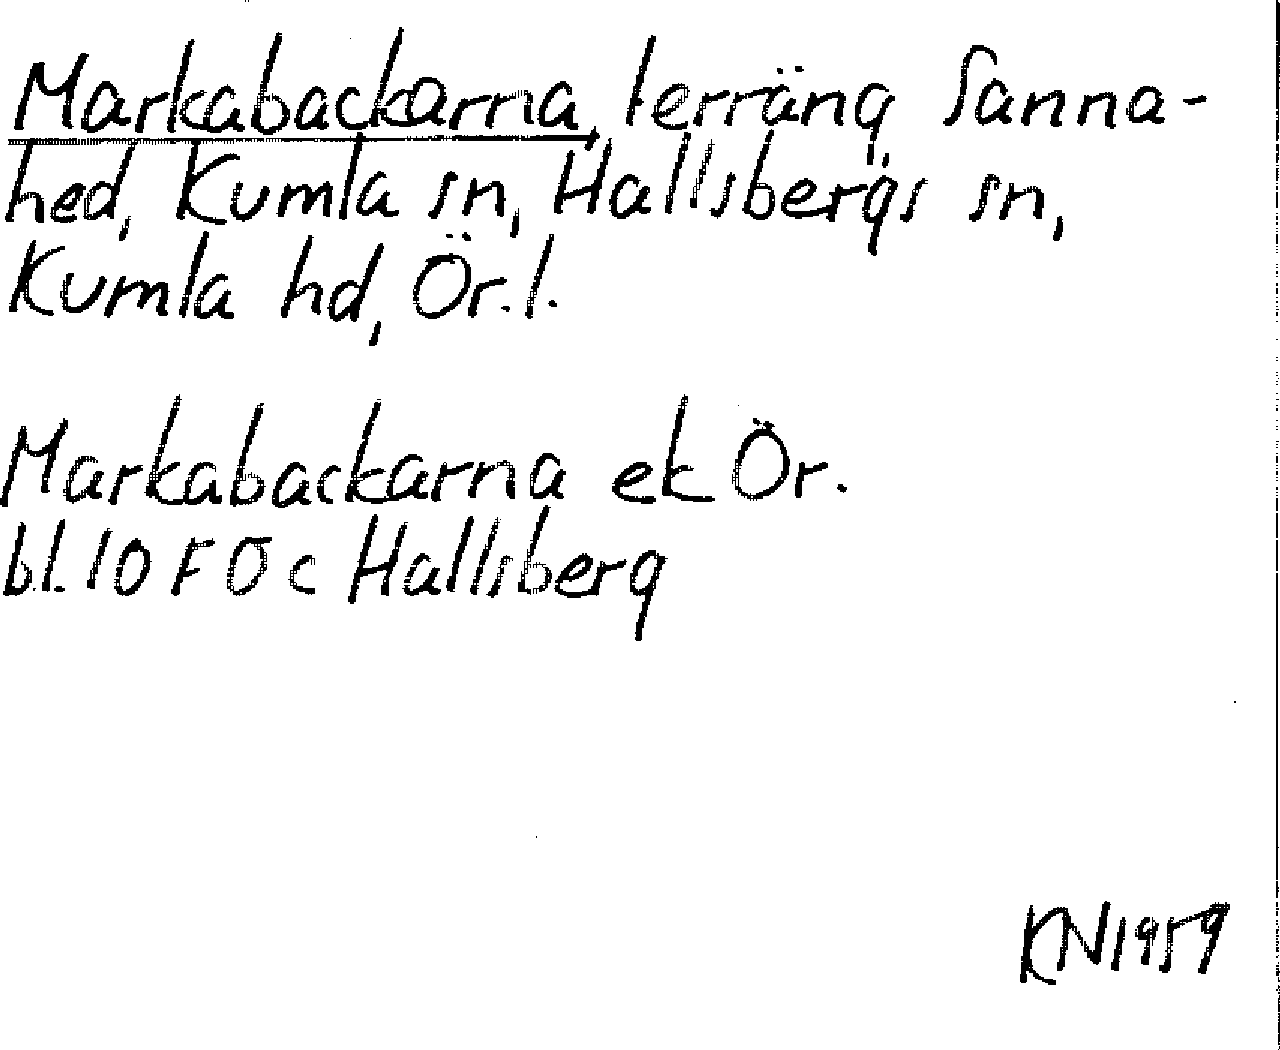 Markabackarna, terräng Sanna-
hed, Kumla sn, Hallsbergs sn,
Kumla hd, Ör. l.
Markabackarna ek Ör.
bl. 10 F 0 c Hallsberg
KN 1959